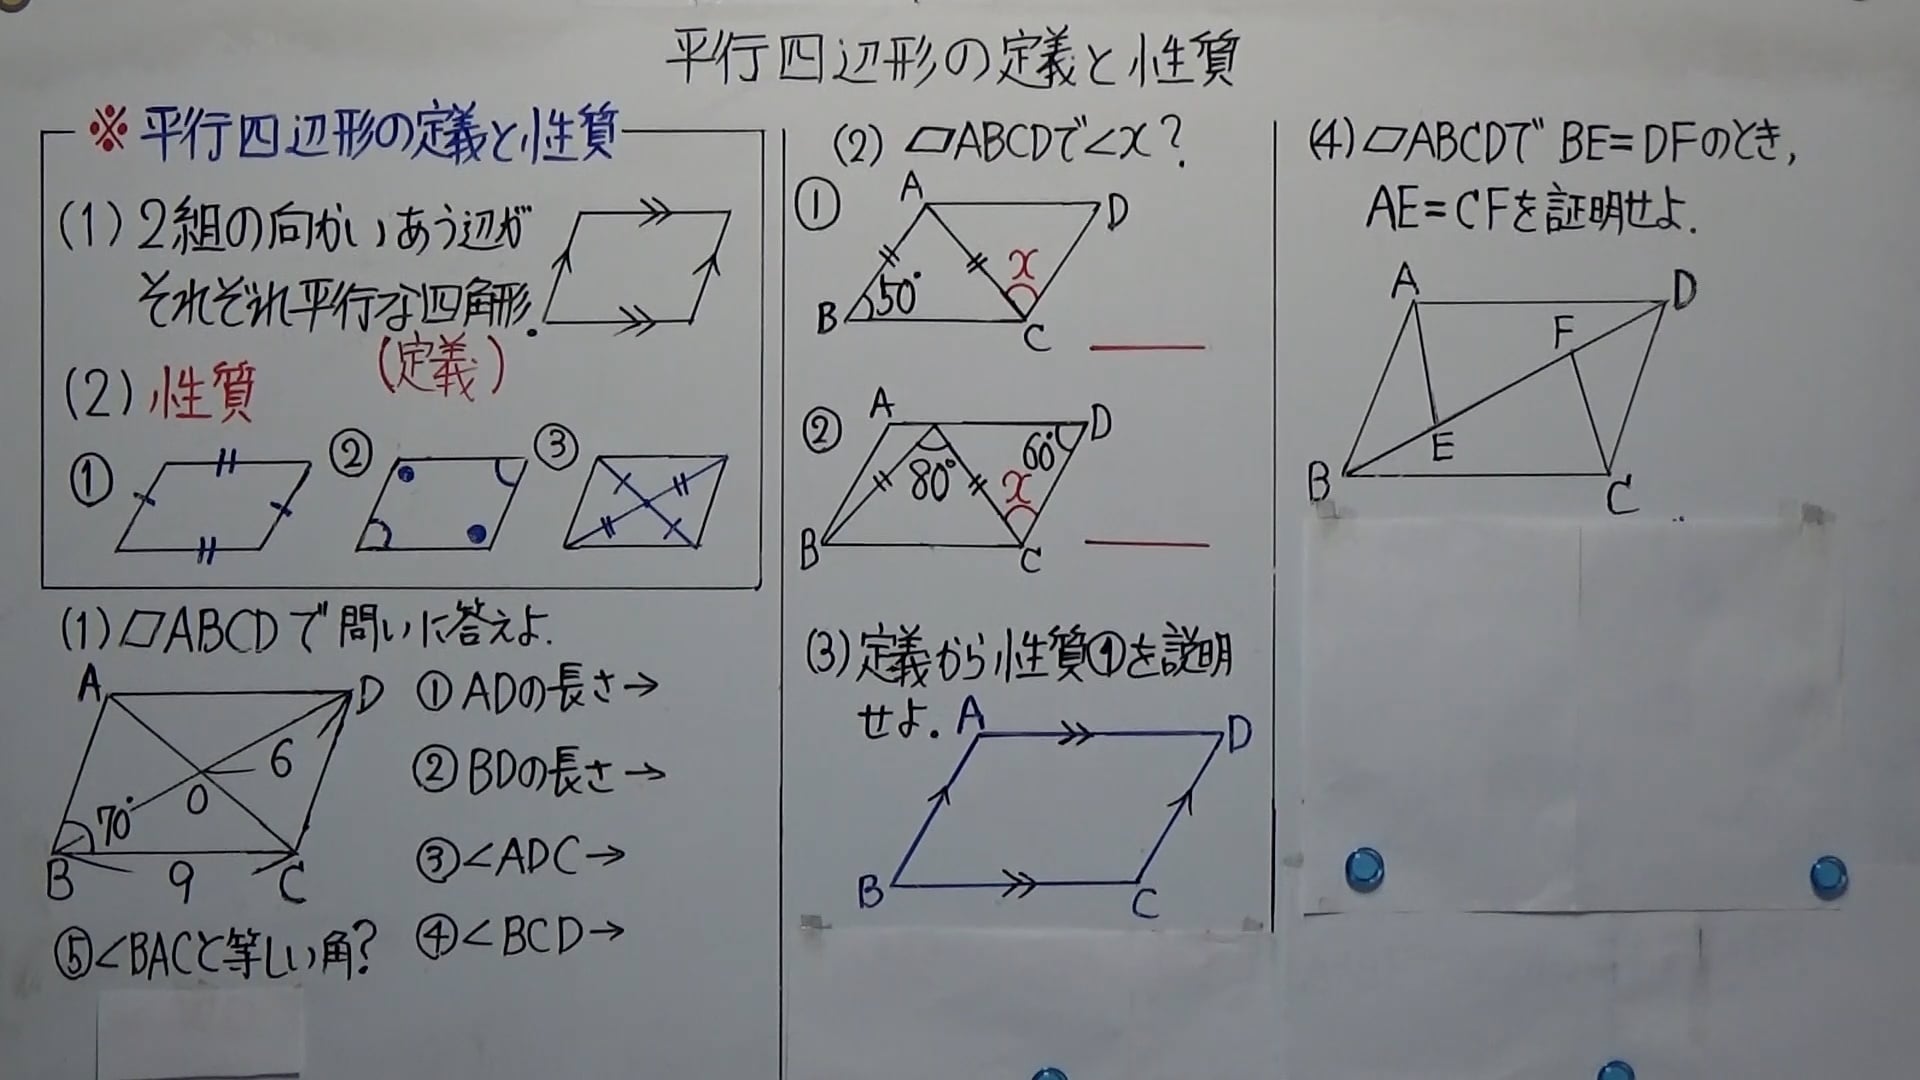 平行四辺形の定義と性質
※平行四辺形の定義と性質
(1) 2組の向かいあう辺が
それぞれ平行な四角形.
(定義)
(2) 性質
① ② ③
(1) ▱ABCDで問いに答えよ.
A D
6
O
70°
B 9 C
① ADの長さ→
② BDの長さ→
③ ∠ADC→
④ ∠BCD→
⑤ ∠BACと等しい角?
(2) ▱ABCDで∠x?
①
A D
x
50°
B C
②
A D
80° 60°
x
B C
(3) 定義から性質①を説明
せよ.
A D
B C
(4) ▱ABCDで BE=DFのとき,
AE=CFを証明せよ.
A D
F
E
B C